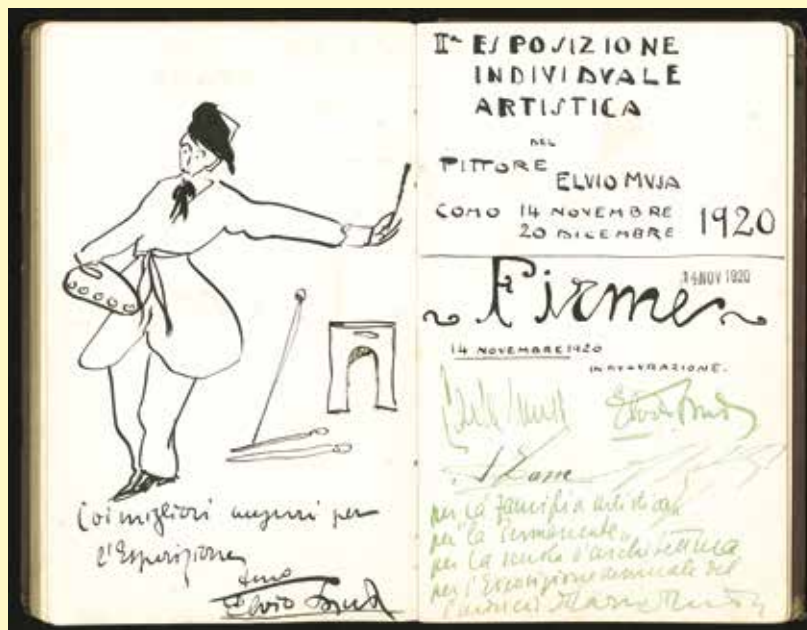 Coi migliori auguri per
l'Esposizione
Elvio
IIa ESPOSIZIONE
INDIVIDVALE
ARTISTICA
DEL
PITTORE ELVIO MVSA
COMO 14 NOVEMBRE
20 DICEMBRE 1920
Firme
14 NOV 1920
14 NOVEMBRE 1920
INAVGVRAZIONE.
per la famiglia artistica
per "la Permanente"
per la scuola d'architettura
per l'Esposizione annuale del